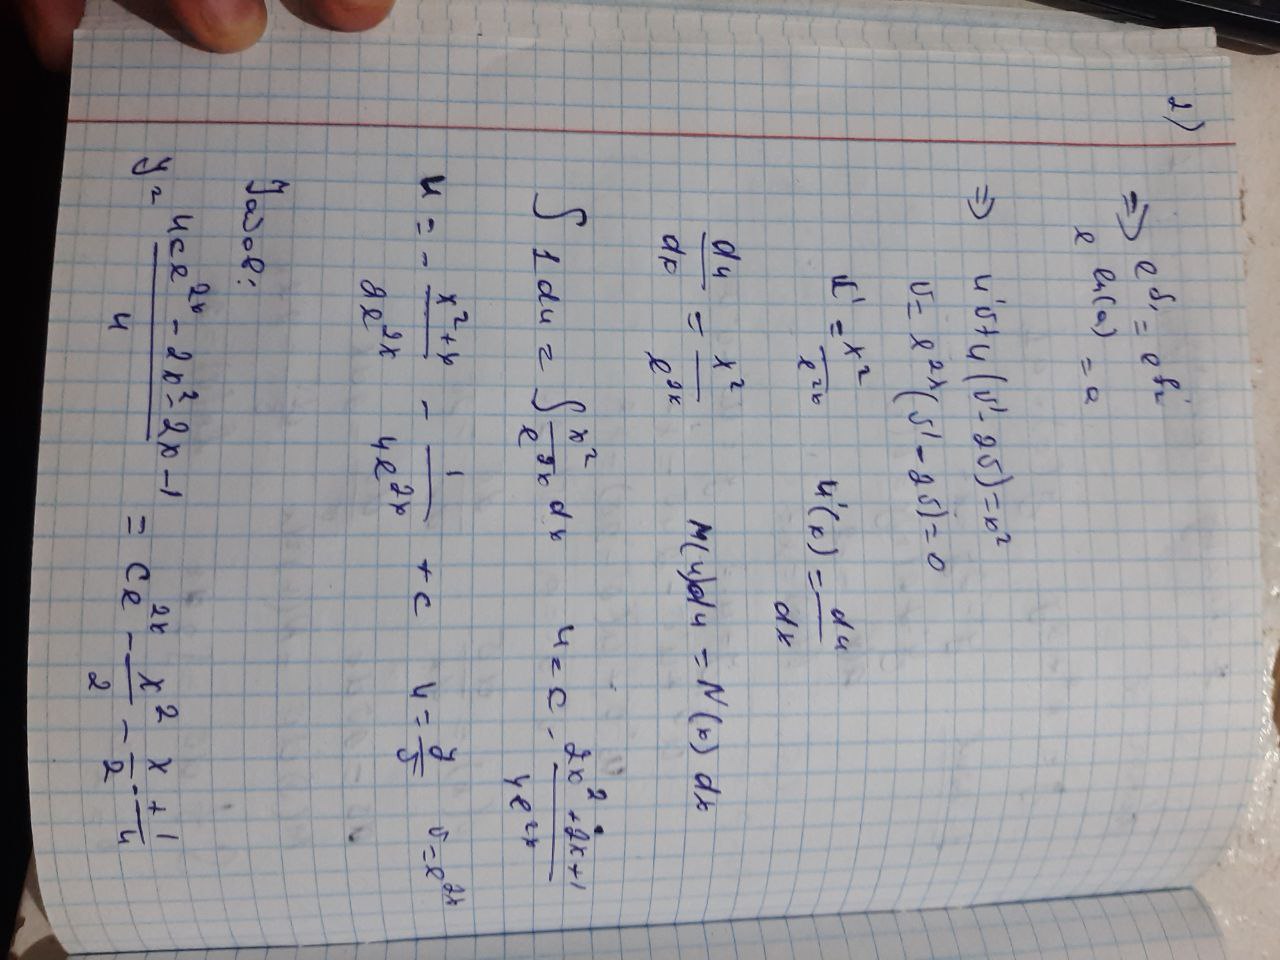 2)
=> e^{b_1} = e^{b_2}
e^{ln(a)} = a
=> u'v + u(v' - 2v) = x^2
v = e^{2x} (v' - 2v) = 0
u' = x^2/e^{2x} u'(x) = du/dx
du/dx = x^2/e^{2x} M(u)du = N(x) dx
∫ 1 du = ∫ x^2/e^{2x} dx u = c - (2x^2 + 2x + 1)/(4e^{2x})
u = - (x^2 + x)/(2e^{2x}) - 1/(4e^{2x}) + c u = y/v v = e^{2x}
Javob:
y = (4ce^{2x} - 2x^2 - 2x - 1)/4 = ce^{2x} - x^2/2 - x/2 - + 1/4